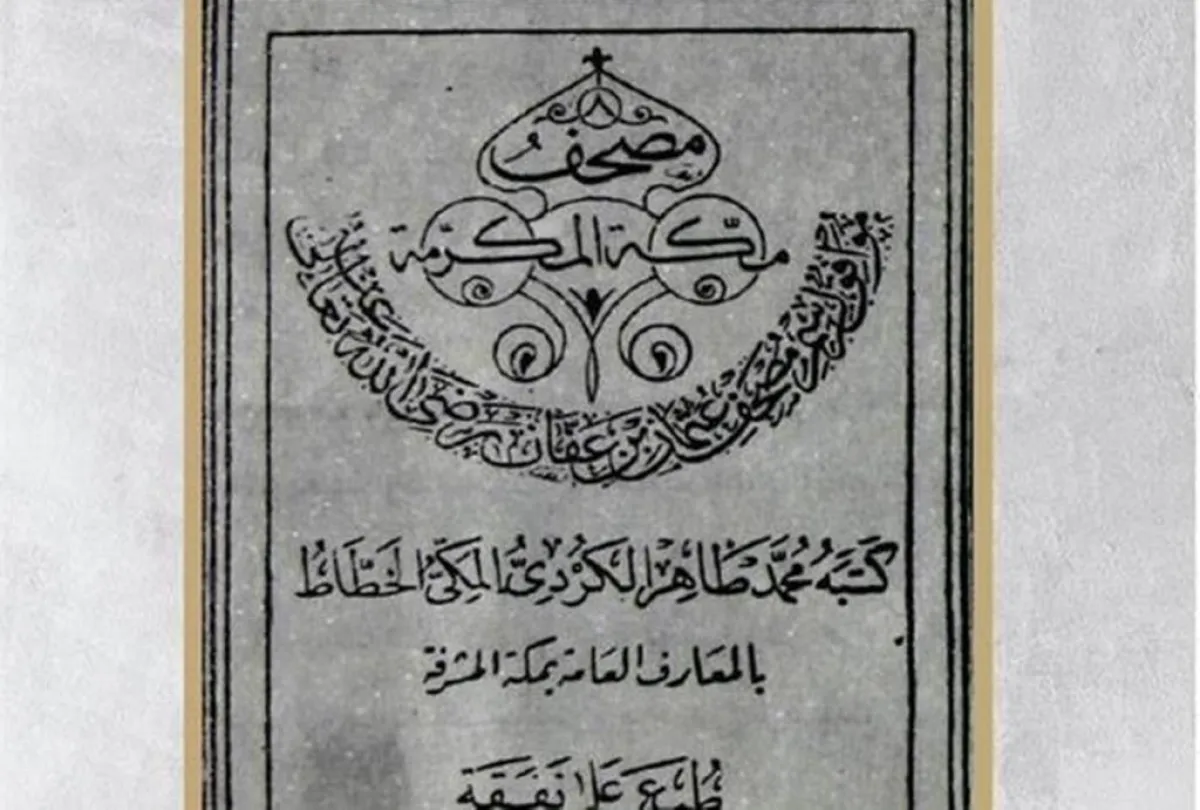 مصحف
مكّة المكرّمة
موافق لرسم مصحف عثمان بن عفان رضي الله تعالى عنه
كَتَبَهُ مُحَمَّد طَاهِر الكُرْدِيُّ المَكِّيُّ الخَطَّاطُ
بالمعارف العامة بمكة المشرفة
طُبِعَ عَلَى نَفَقَة